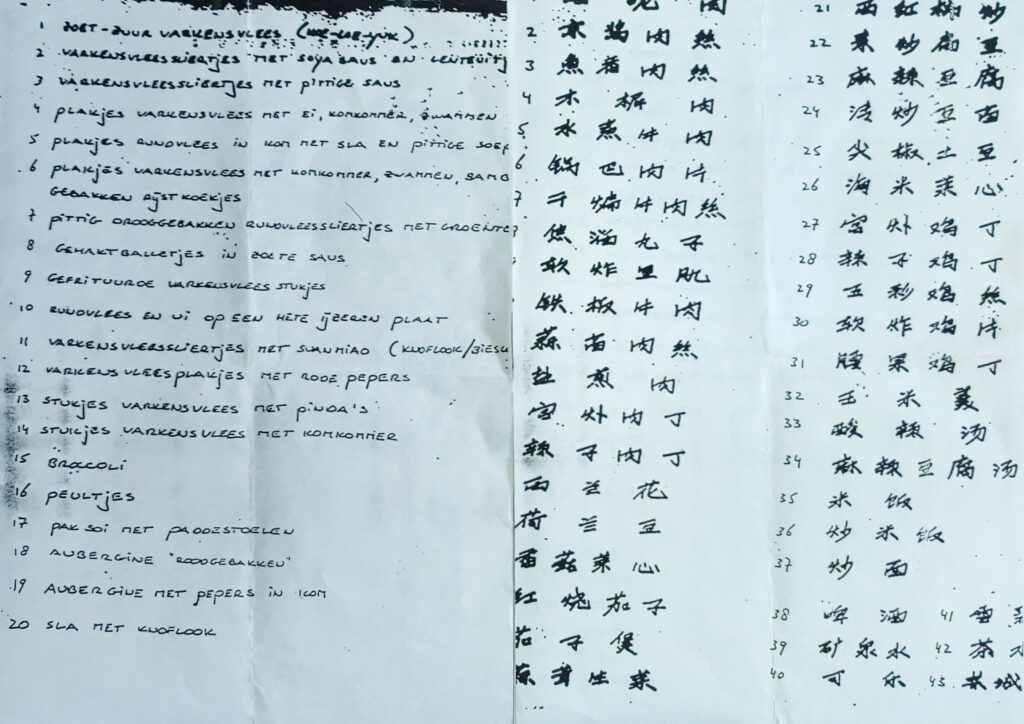 1 ZOET-ZUUR VARKENSVLEES (KOE-LOE-YUK)
2 VARKENSVLEESSLIERTJES MET SOYASAUS EN LENTEUITJ
3 VARKENSVLEESSLIERTJES MET PITTIGE SAUS
4 PLAKJES VARKENSVLEES MET EI, KOMKOMMER, ZWAMMEN
5 PLAKJES RUNDVLEES IN KOM MET SLA EN PITTIGE SOEP
6 PLAKJES VARKENSVLEES MET KOMKOMMER, ZWAMMEN, SAMB
GEBAKKEN RIJSTKOEKJES
7 PITTIG DROOGGEBAKKEN RUNDVLEESSLIERTJES MET GROENTE
8 GEHAKTBALLETJES IN ZOETE SAUS
9 GEFRITUURDE VARKENSVLEES STUKJES
10 RUNDVLEES EN UI OP EEN HETE IJZEREN PLAAT
11 VARKENSVLEESSLIERTJES MET SUANMIAO (KNOFLOOK/BIESL
12 VARKENSVLEESPLAKJES MET RODE PEPERS
13 STUKJES VARKENSVLEES MET PINDA'S
14 STUKJES VARKENSVLEES MET KOMKOMMER
15 BROCCOLI
16 PEULTJES
17 PAKSOI MET PADDESTOELEN
18 AUBERGINE "ROODGEBAKKEN"
19 AUBERGINE MET PEPERS IN KOM
20 SLA MET KNOFLOOK
肉
2 京酱肉絲
3 魚香肉絲
4 木樨肉
5 水煮牛肉
6 锅巴肉片
7 干煸牛肉絲
焦溜丸子
软炸里肌
铁板牛肉
蒜苗肉絲
盐煎肉
宫 肉丁
辣子肉丁
西兰花
荷兰豆
香菇菜心
红烧茄子
茄子煲
蒜茸生菜
21 西红柿炒
22 炒
23 麻辣豆腐
24 清炒豆苗
25 尖椒土豆
26 海米菜心
27 宫 鸡丁
28 辣子鸡丁
29 五彩鸡絲
30 软炸鸡片
31 腰果鸡丁
32 玉米羹
33 酸辣汤
34 麻辣豆腐汤
35 米饭
36 炒米饭
37 炒面
38 啤酒 41 雪
39 矿泉水 42 茶水
40 可乐 43 长城